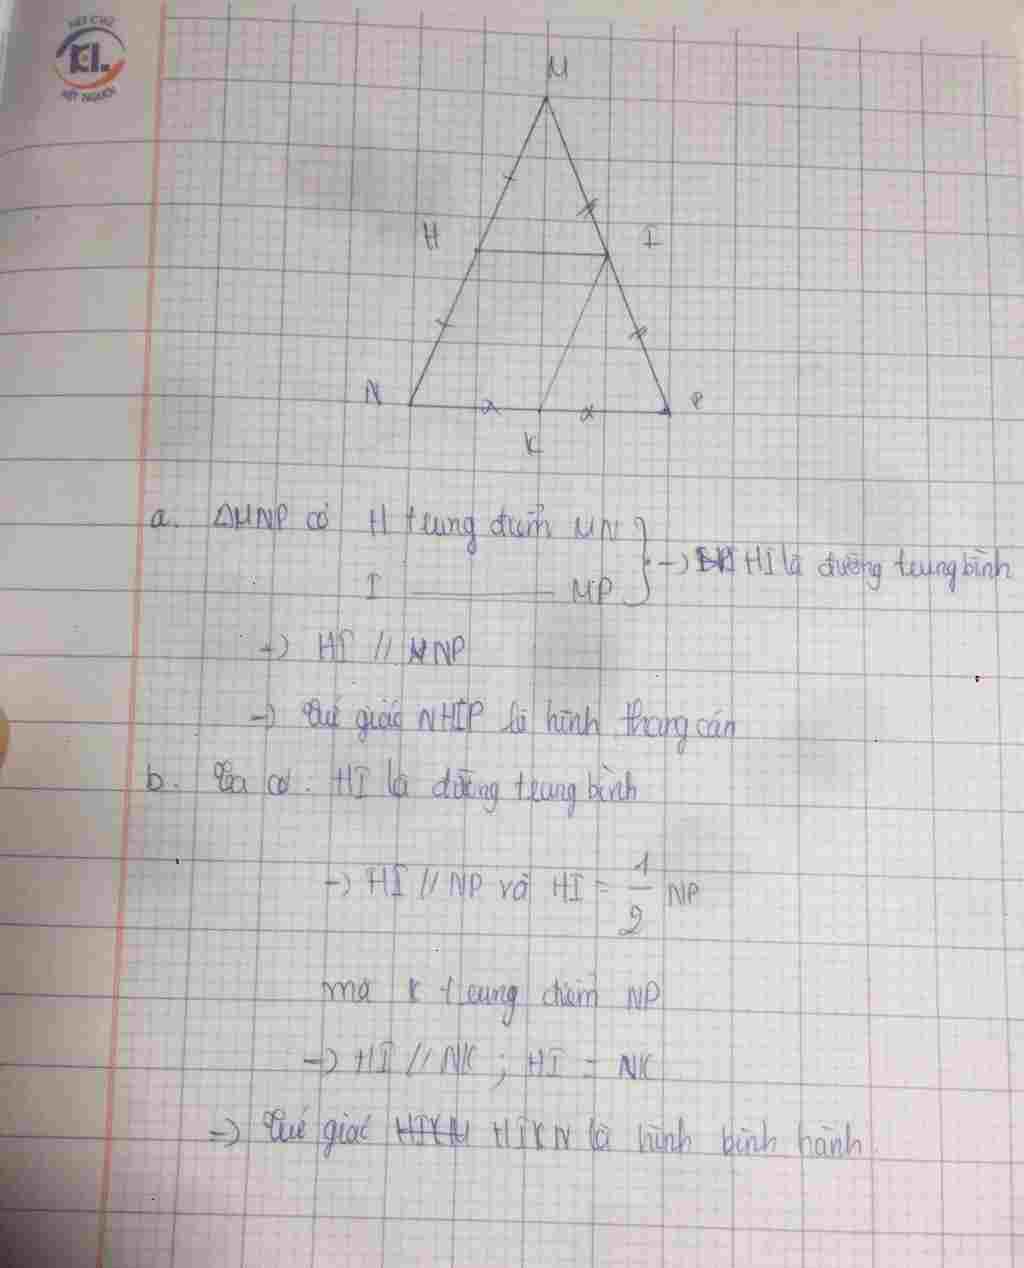 KẾT CHỮ
KL.
KẾT NGƯỜI
M
H
I
N
P
K
a. ΔMNP có H trung điểm MN
I ———— MP
→ HI là đường trung bình
→ HI // NP
→ Tứ giác NHIP là hình thang cân
b. Ta có: HI là đường trung bình
→ HI // NP và HI = 1/2 NP
mà K trung điểm NP
→ HI // NK ; HI = NK
→ Tứ giác HIKN là hình bình hành